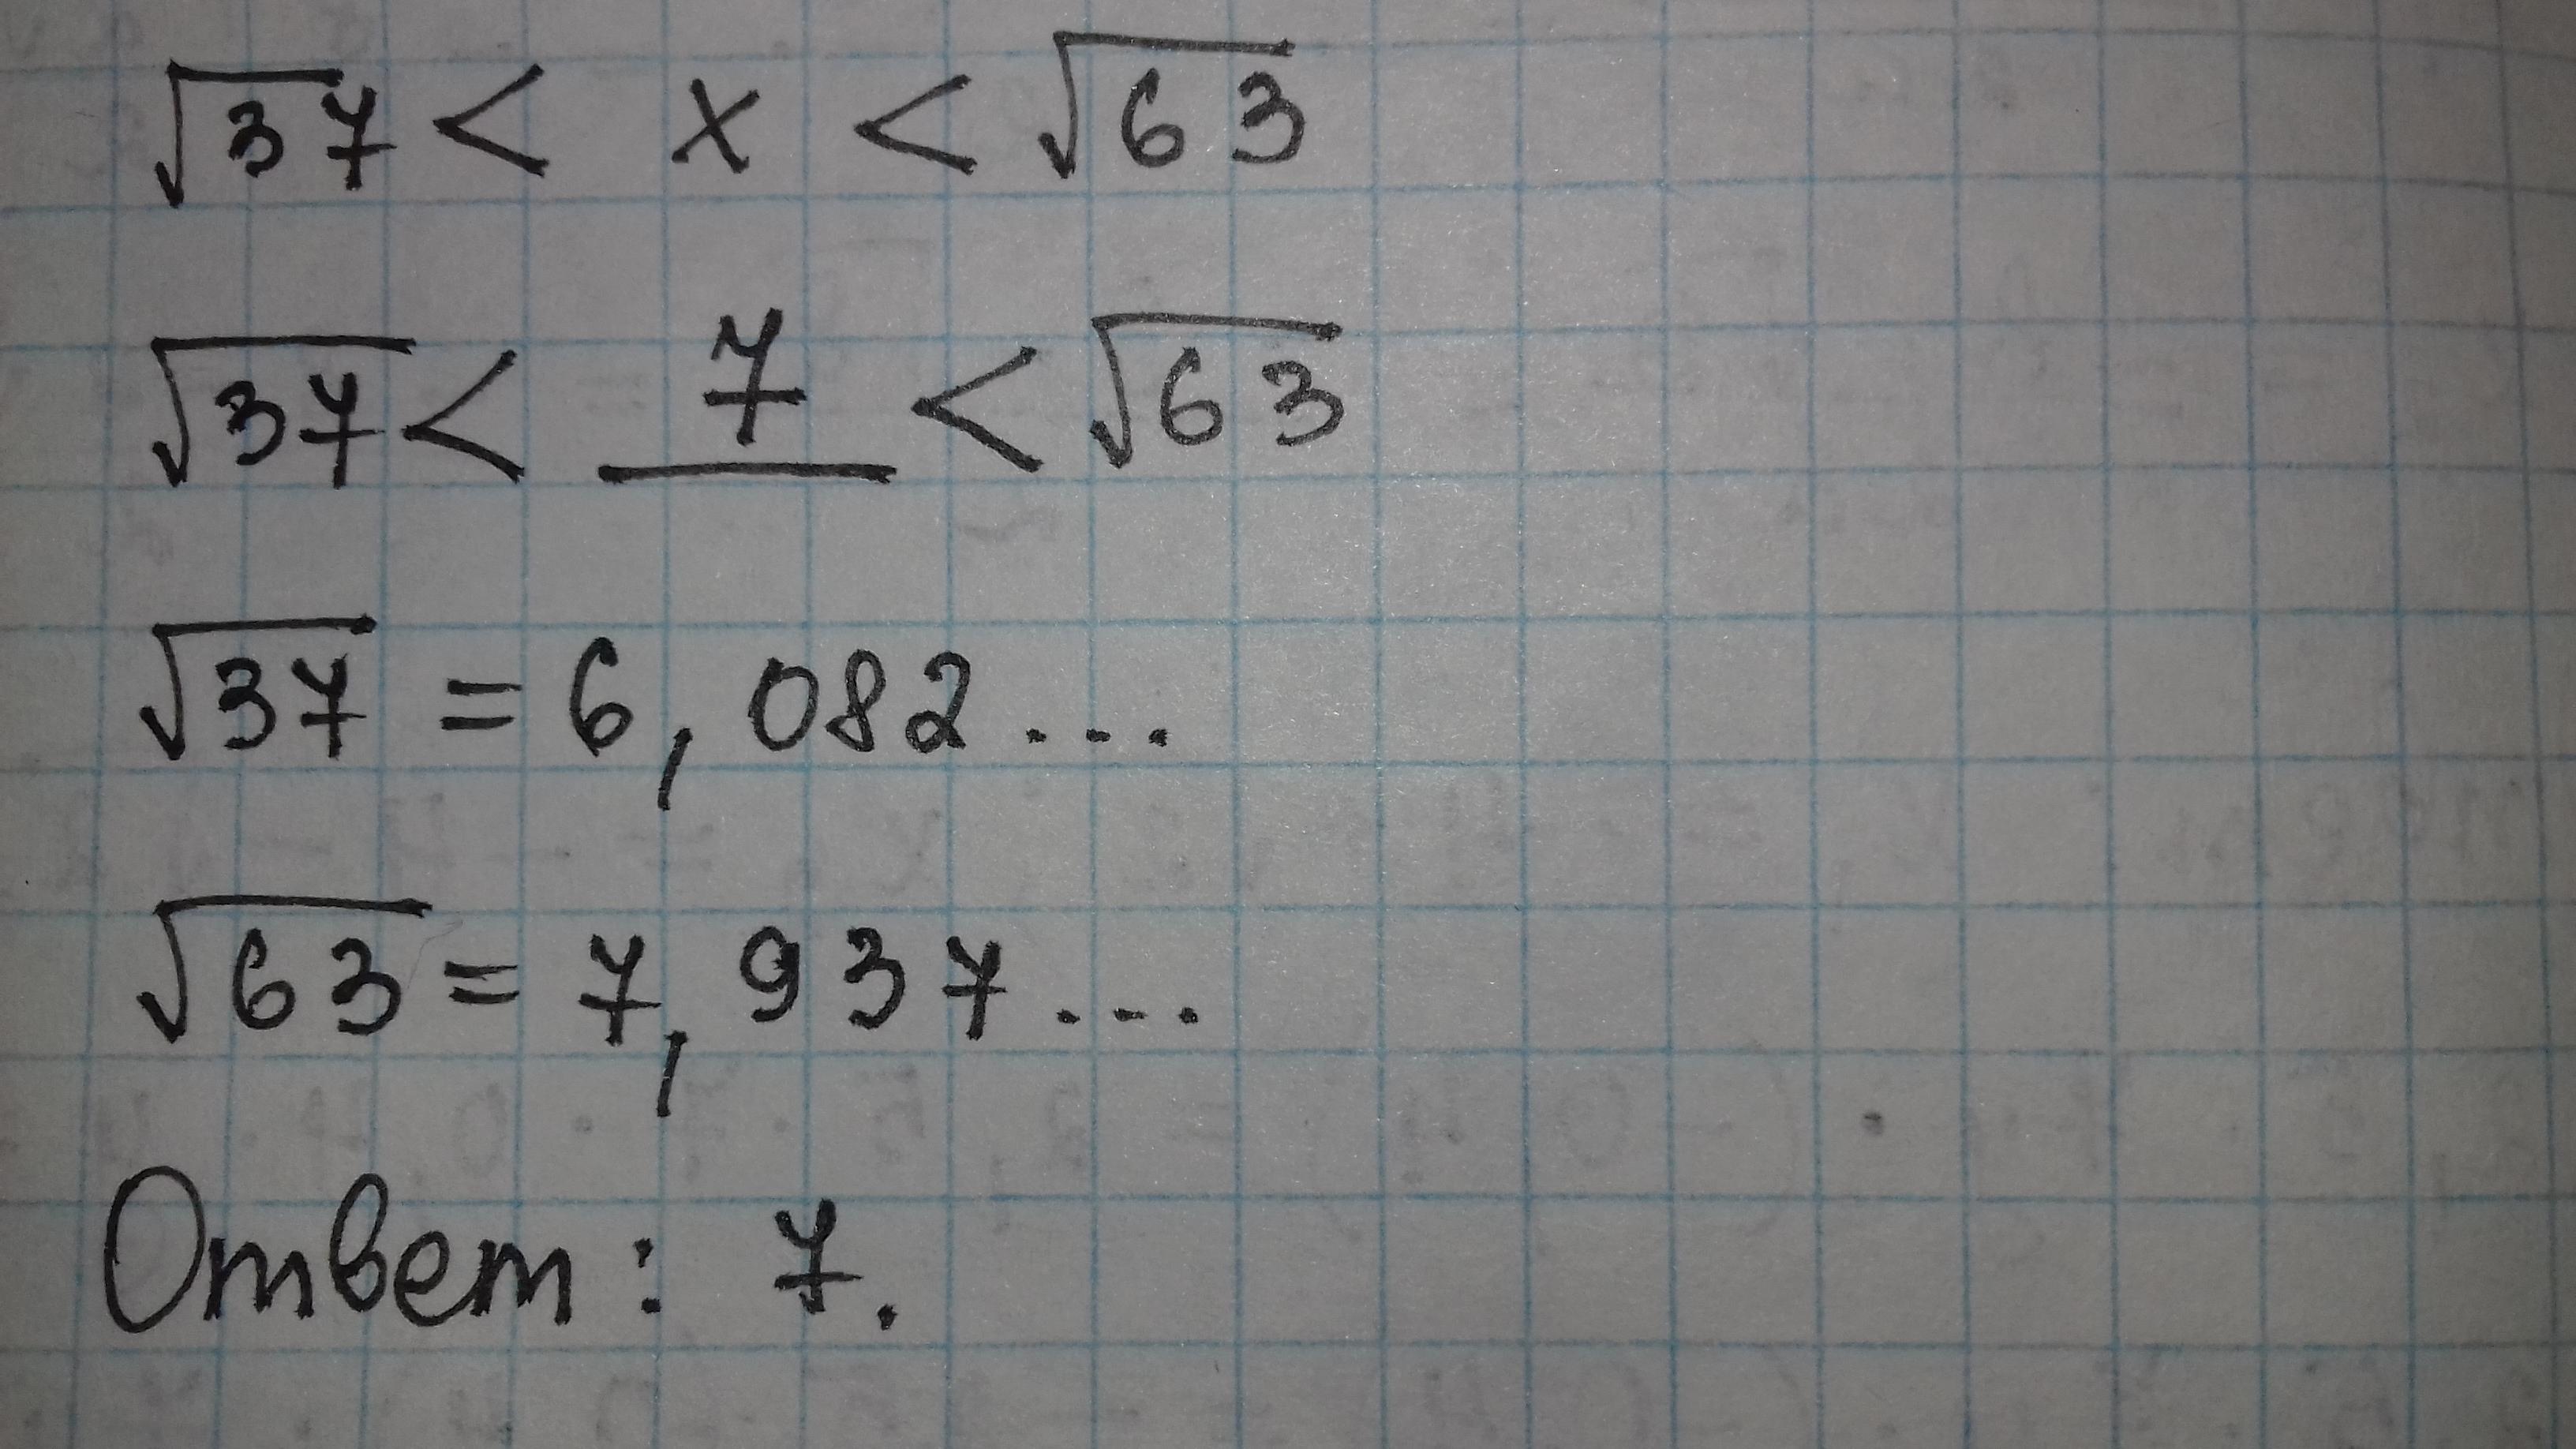 √37 < x < √63
√37 < 7 < √63
√37 = 6,082...
√63 = 7,937...
Ответ: 7.